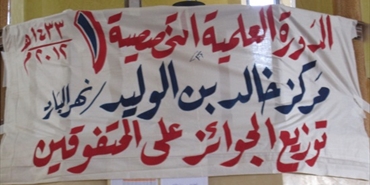 الدورة العلمية التخصصية ١
١٤٣٣هـ
٢٠١٢م
مركز خالد بن الوليد / نهر البارد
توزيع الجوائز على المتفوقين